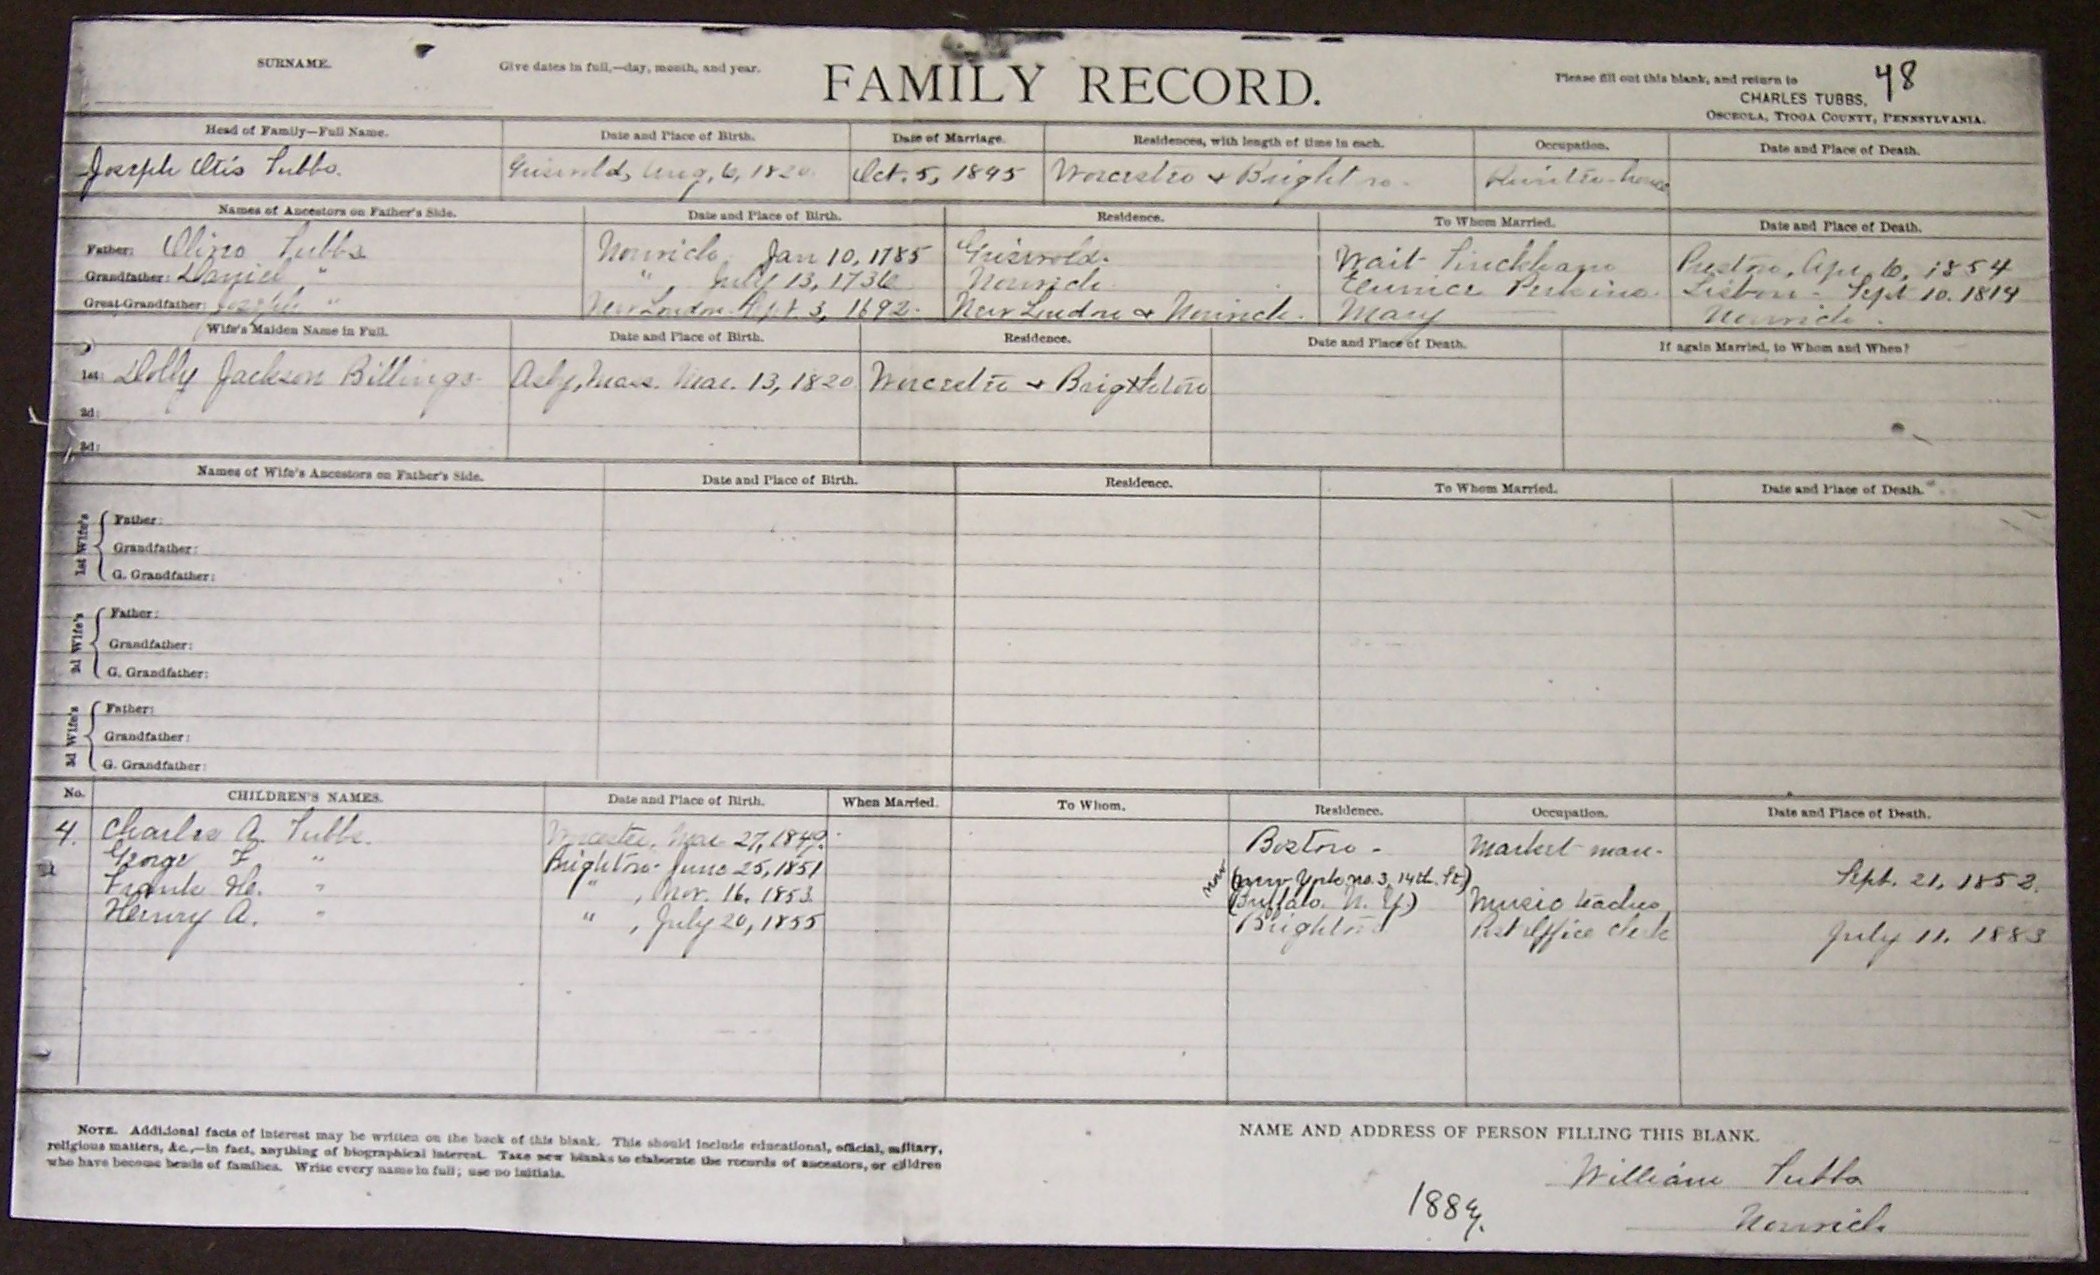 SURNAME.
Give dates in full,—day, month, and year.
FAMILY RECORD.
Please fill out this blank, and return to
48
CHARLES TUBBS,
OSCEOLA, TIOGA COUNTY, PENNSYLVANIA.
Head of Family—Full Name. Date and Place of Birth. Date of Marriage. Residences, with length of time in each. Occupation. Date and Place of Death.
Joseph Otis Tubbs. Griswold, Aug. 6, 1820 Oct. 5, 1895 Worcester & Brighton.
Names of Ancestors on Father's Side. Date and Place of Birth. Residence. To Whom Married. Date and Place of Death.
Father: Tubbs Norwich Jan 10, 1785 Griswold. Wait Pinckham Preston, Apr. 6, 1854
Grandfather: Daniel " " July 13, 1736 Norwich. Eunice Perkins. Lisbon - Sept 10. 1814
Great-Grandfather: Joseph " New London 3, 1692. New London & Norwich. Mary Norwich.
Wife's Maiden Name in Full. Date and Place of Birth. Residence. Date and Place of Death. If again Married, to Whom and When?
1st: Dolly Jackson Billings Asby, Mass. Mar. 13, 1820 Worcester & Brighton
2d:
3d:
Names of Wife's Ancestors on Father's Side. Date and Place of Birth. Residence. To Whom Married. Date and Place of Death.
1st Wife's
Father:
Grandfather:
G. Grandfather:
2d Wife's
Father:
Grandfather:
G. Grandfather:
3d Wife's
Father:
Grandfather:
G. Grandfather:
No. CHILDREN'S NAMES. Date and Place of Birth. When Married. To Whom. Residence. Occupation. Date and Place of Death.
4. Charles A. Tubbs. Worcester, Mar 27, 1849. Boston - Market man.
George F " Brighton June 25, 1851 Sept. 21, 1852.
Frank H. " " , Nov. 16, 1853 now (New York no. 3, 14th. St)
(Buffalo. N. Y.) Music teacher
Henry A. " " , July 20, 1855 Brighton Post Office Clerk July 11. 1883
NOTE. Additional facts of interest may be written on the back of this blank. This should include educational, official, military,
religious matters, &c.,—in fact, anything of biographical interest. Take new blanks to elaborate the records of ancestors, or children
who have become heads of families. Write every name in full; use no initials.
NAME AND ADDRESS OF PERSON FILLING THIS BLANK.
William Tubbs
Norwich